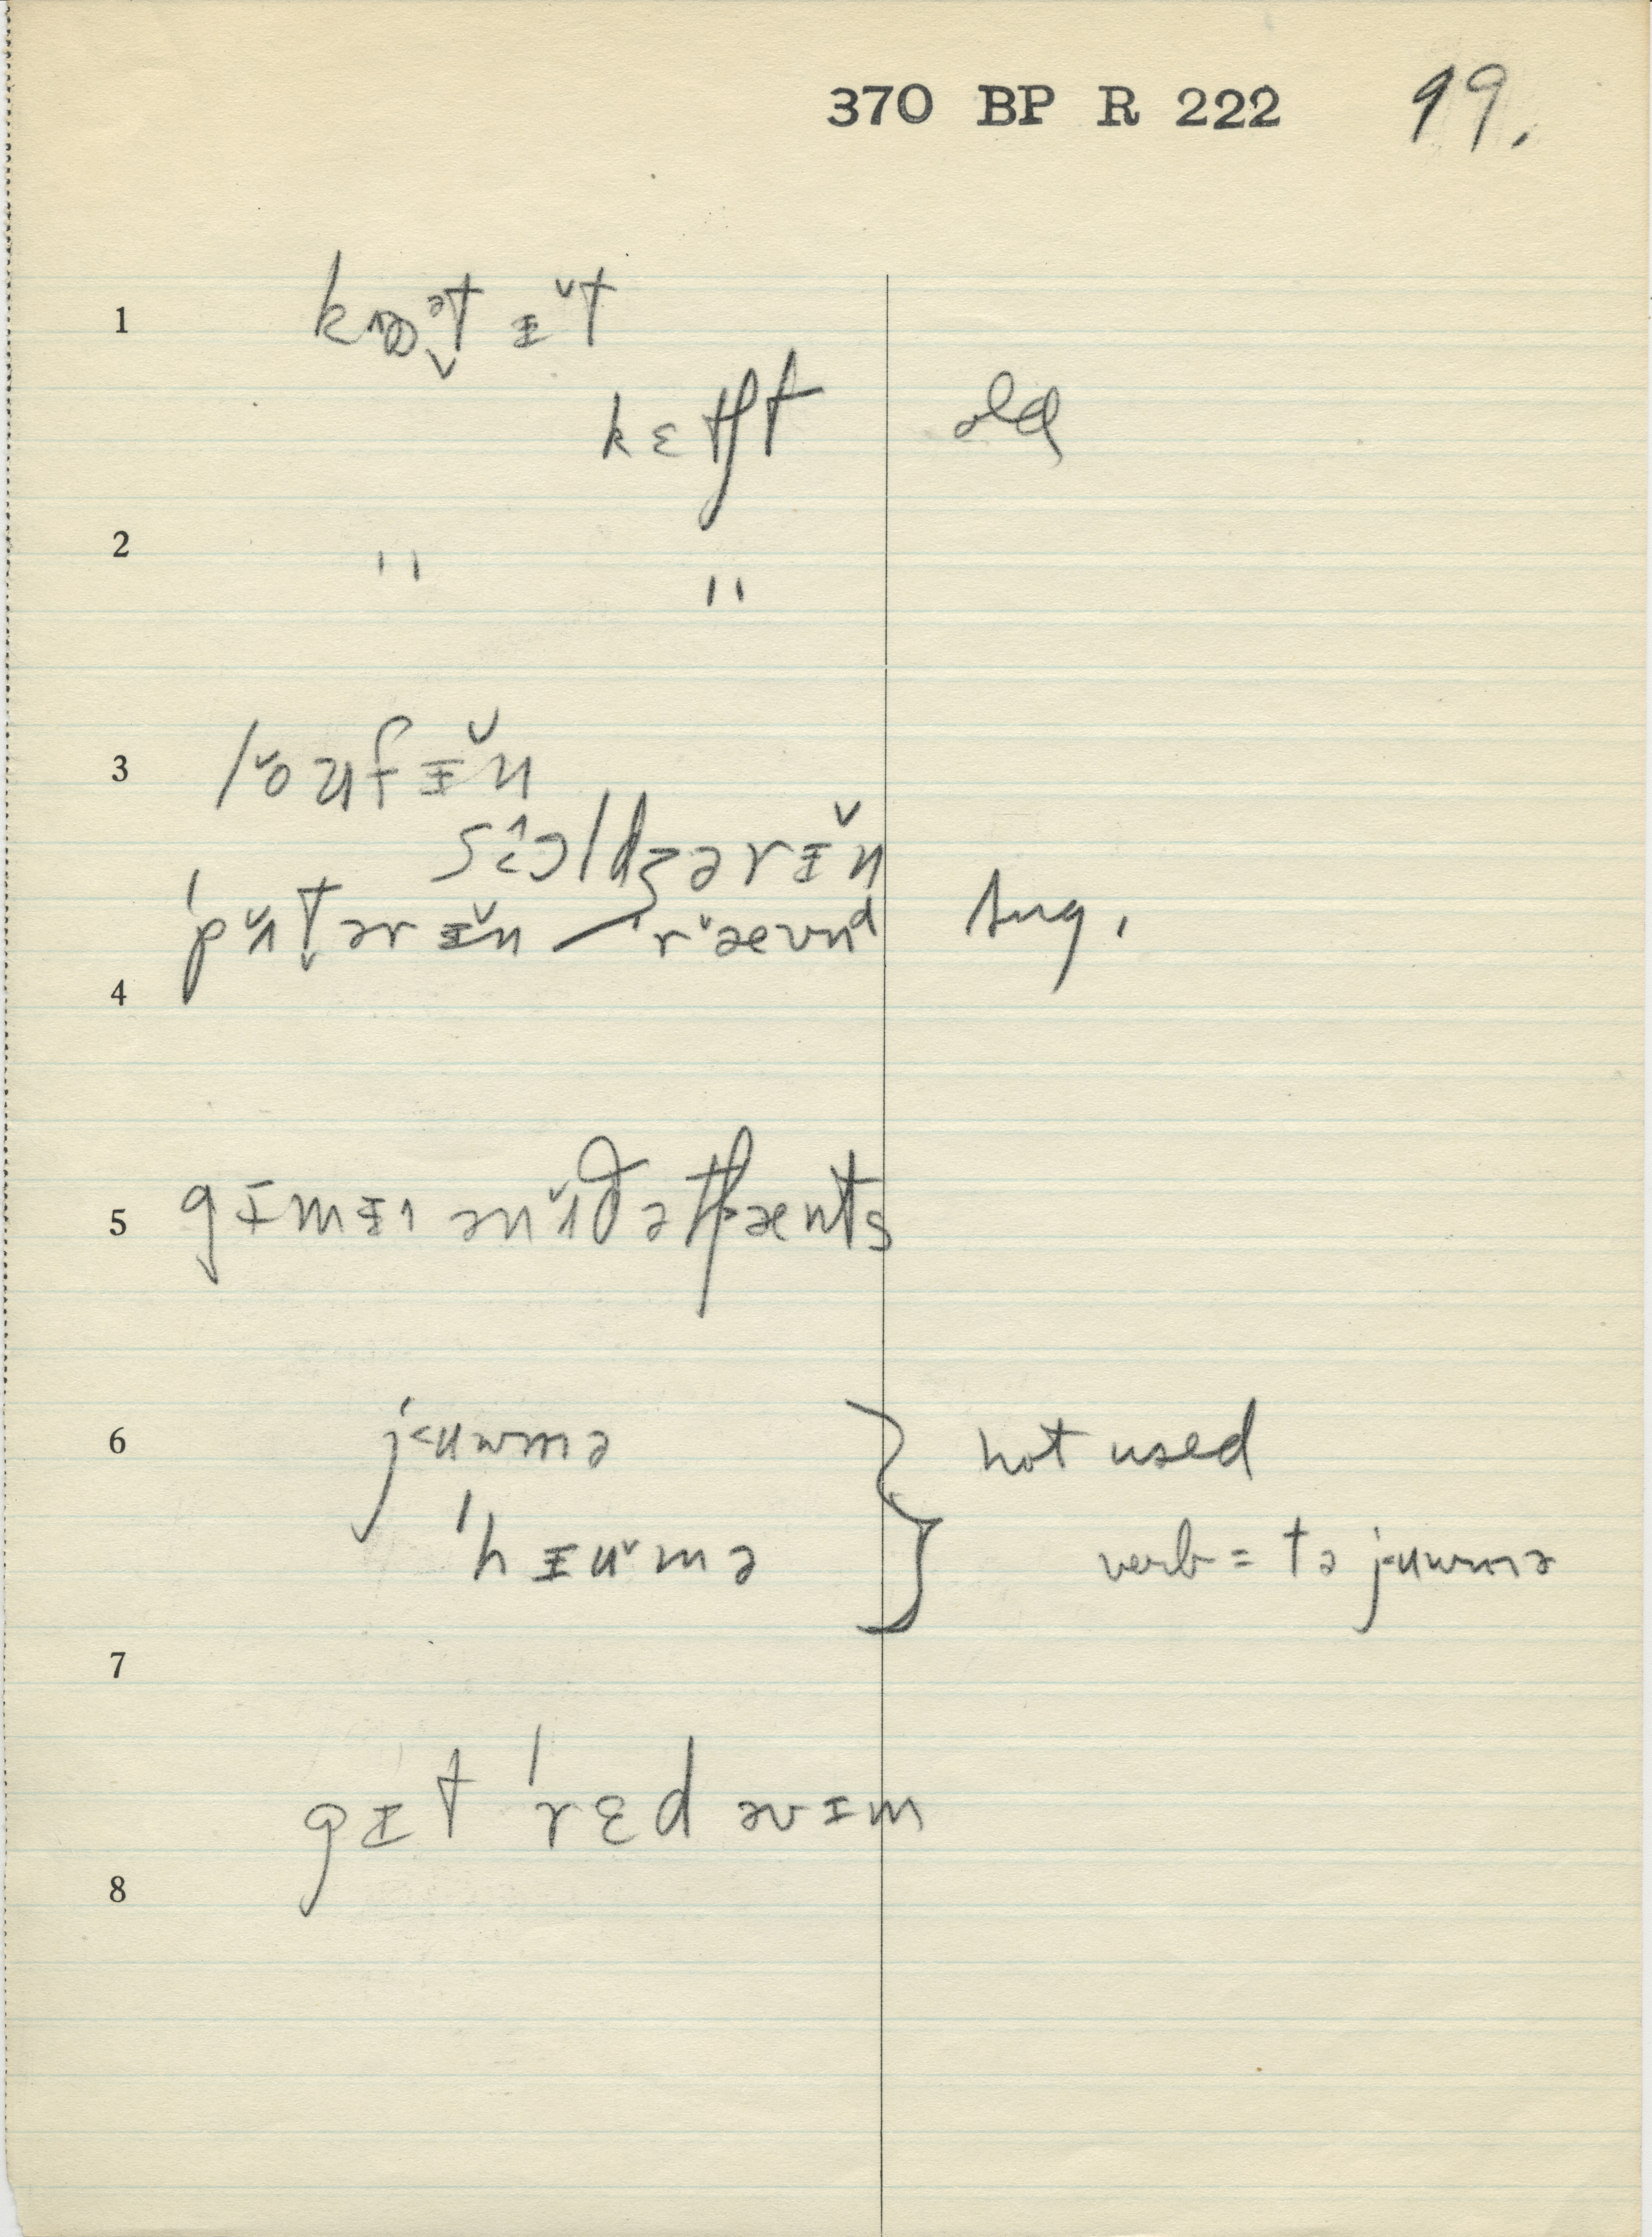 370 BP R 222 99.
1 kɒᵊt̬ ɪ̵̆t
kɛtʃt old
2 " "
3 lŏʊfɪ̵̆n
soldʒərɪ̵̆n
pʌ̆t̬ərɪ̵̆n — 'rævnd sug.
4
5 gɪmɪ ənʌ̆ðətʃænts
6 jɐumə } not used
'hɪuˇmə verb = tə jɐumə
7
gɪt 'rɛd əvɪm
8